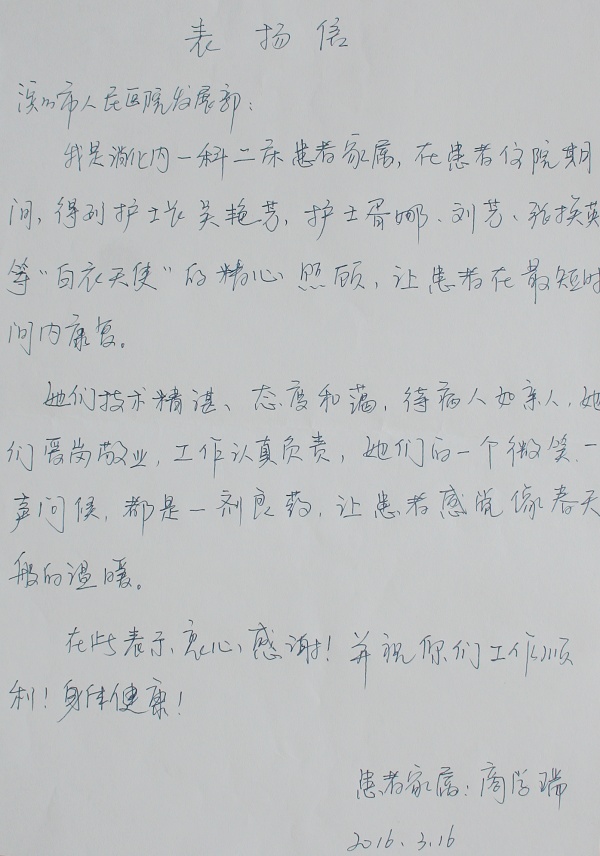 表扬信
滨州市人民医院发展部：
我是消化内一科二床患者家属，在患者住院期
间，得到护士长吴艳芳，护士胥娜、刘芳、张焕英
等“白衣天使”的精心照顾，让患者在最短时
间内康复。
她们技术精谌、态度和蔼，待病人如亲人，她
们爱岗敬业，工作认真负责，她们的一个微笑、一
声问候，都是一剂良药，让患者感觉像春天
般的温暖。
在此表示衷心感谢！并祝你们工作顺
利！身体健康！
患者家属：商学瑞
2016.3.16